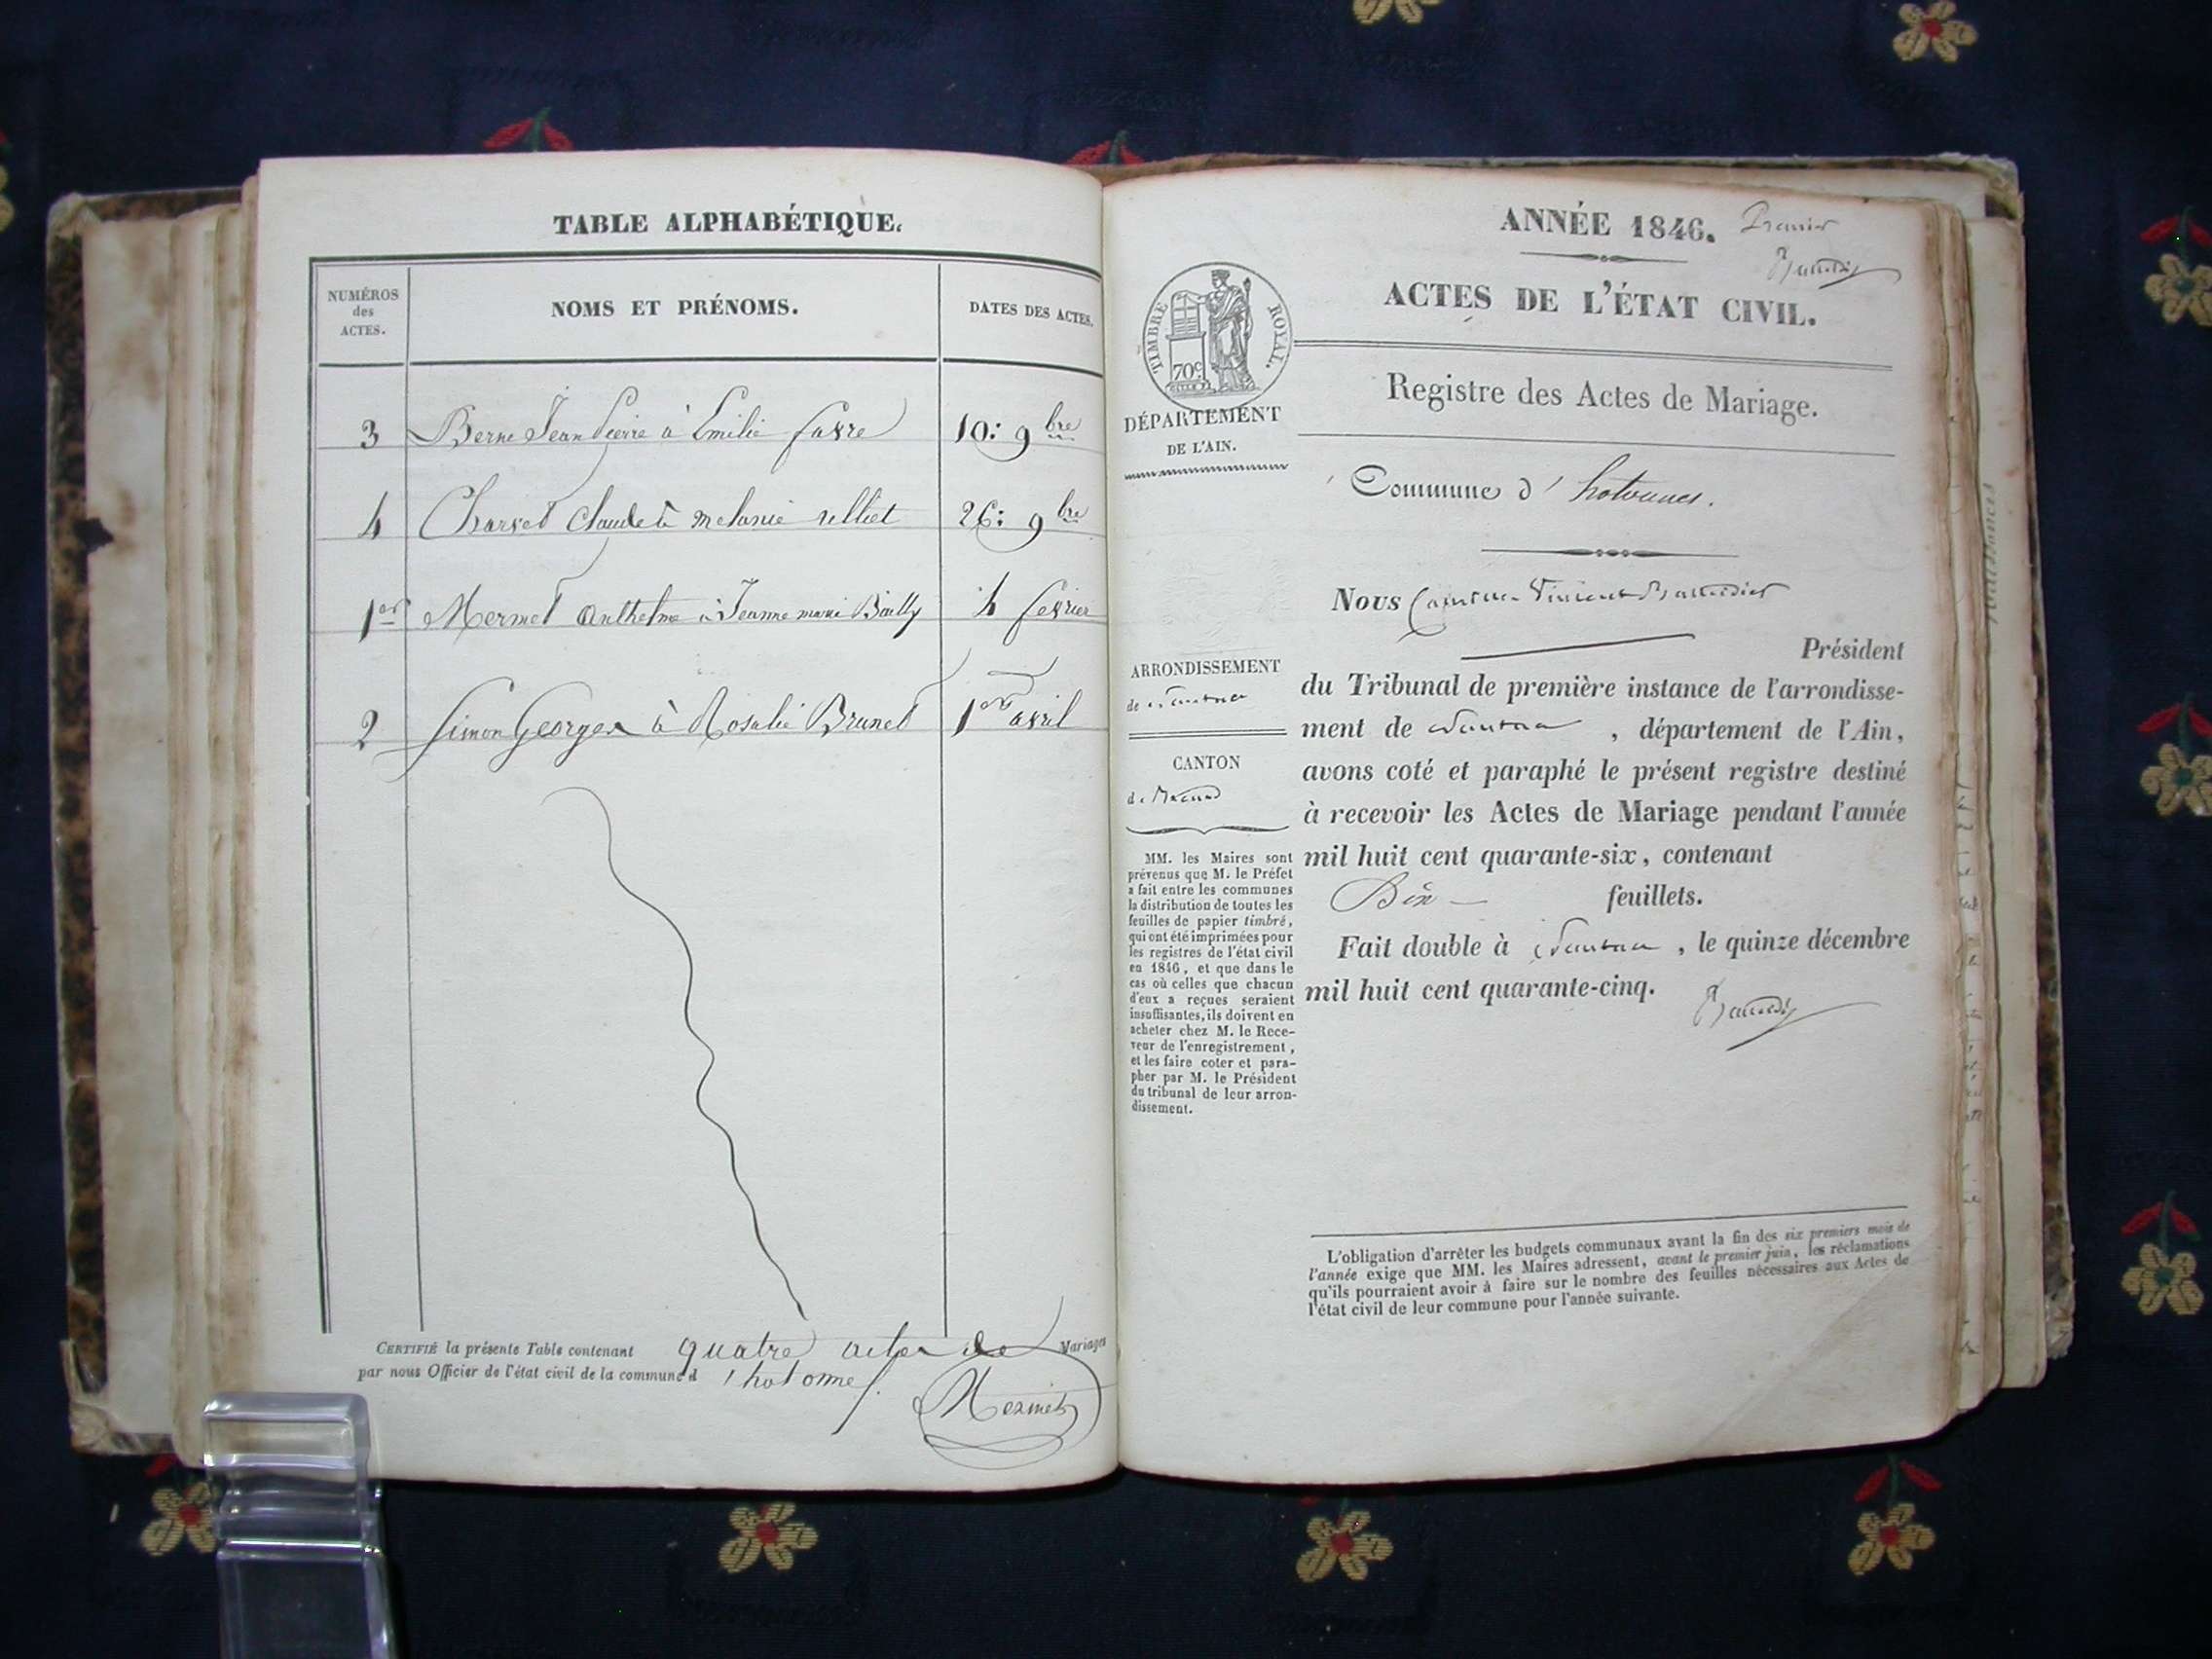 TABLE ALPHABÉTIQUE.
NUMÉROS
des
ACTES.
NOMS ET PRÉNOMS.
DATES DES ACTES.
3 Berne Jean Pierre à Emilie favre 10: 9bre
4 Charvet Claude à melanie relliet 26: 9bre
1er Mermet Anthelme à Jeanne marie Bailly 4 fevrier
2 Simon Georges à Rosalie Brunet 1er avril
CERTIFIÉ la présente Table contenant quatre actes de Mariages
par nous Officier de l'état civil de la commune d'hotonnes.
Mermet
ANNÉE 1846. Premier
TIMBRE ROYAL.
70c
ACTES DE L'ÉTAT CIVIL.
Registre des Actes de Mariage.
DÉPARTEMENT
DE L'AIN.
Commune d'hotonnes.
Nous Vincent
Président
ARRONDISSEMENT
de Nantua
CANTON
de
MM. les Maires sont
prévenus que M. le Préfet
a fait entre les communes
la distribution de toutes les
feuilles de papier timbré,
qui ont été imprimées pour
les registres de l'état civil
en 1846, et que dans le
cas où celles que chacun
d'eux a reçues seraient
insuffisantes, ils doivent en
acheter chez M. le Rece-
veur de l'enregistrement,
et les faire coter et para-
pher par M. le Président
du tribunal de leur arron-
dissement.
du Tribunal de première instance de l'arrondisse-
ment de Nantua, département de l'Ain,
avons coté et paraphé le présent registre destiné
à recevoir les Actes de Mariage pendant l'année
mil huit cent quarante-six, contenant
Dix feuillets.
Fait double à Nantua, le quinze décembre
mil huit cent quarante-cinq.
L'obligation d'arrêter les budgets communaux avant la fin des six premiers mois de
l'année exige que MM. les Maires adressent, avant le premier juin, les réclamations
qu'ils pourraient avoir à faire sur le nombre des feuilles nécessaires aux Actes de
l'état civil de leur commune pour l'année suivante.